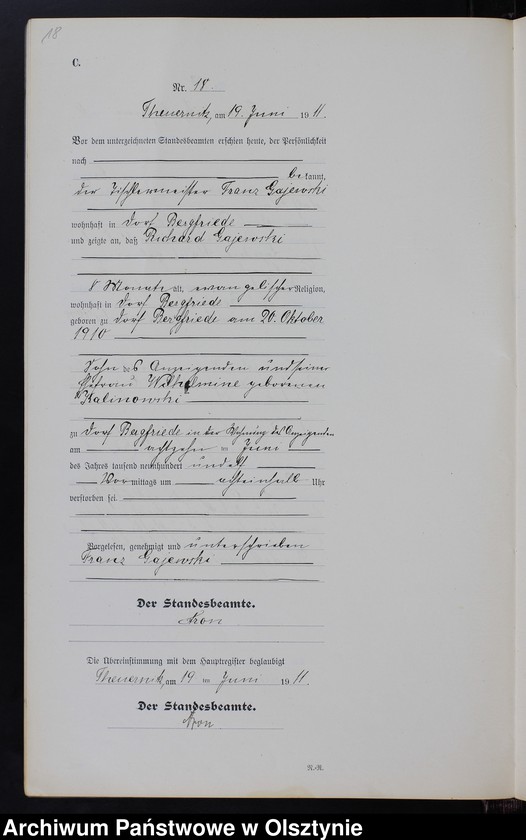 18
C.
Nr. 18.
Theuernitz, am 19. Juni 1911.
Vor dem unterzeichneten Standesbeamten erschien heute, der Persönlichkeit
nach
bekannt,
der Tischlermeister Franz Gajewski
wohnhaft in Dorf Bergfriede
und zeigte an, daß Richard Gajewski
8 Monate alt, evangelischer Religion,
wohnhaft in Dorf Bergfriede
geboren zu Dorf Bergfriede am 20. Oktober
1910
Sohn des Anzeigenden und seiner
Ehefrau Wilhelmine geborenen
Kalinowski
zu Dorf Bergfriede in der Wohnung des Anzeigenden
am achtzehn ten Juni
des Jahres tausend neunhundert und elf
Vormittags um achteinhalb Uhr
verstorben sei.
Vorgelesen, genehmigt und unterschrieben
Franz Gajewski
Der Standesbeamte.
Die Übereinstimmung mit dem Hauptregister beglaubigt
Theuernitz, am 19 ten Juni 1911.
Der Standesbeamte.
N.-R.
Archiwum Państwowe w Olsztynie